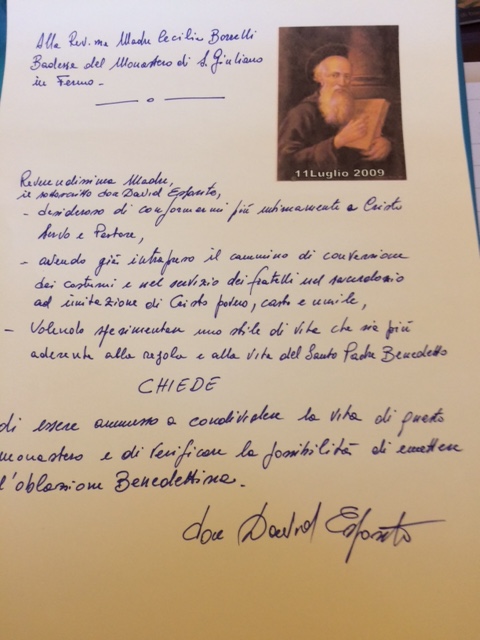 Alla Rev.ma Madre Cecilia Borrelli
Badessa del Monastero di S. Giuliano
in Fermo.
11Luglio 2009
Reverendissima Madre,
il sottoscritto don David Esposito,
- desideroso di conformarmi più intimamente a Cristo
Servo e Pastore,
- avendo già intrapreso il cammino di conversione
dei costumi e nel servizio dei fratelli nel sacerdozio
ad imitazione di Cristo povero, casto e umile,
- Volendo sperimentare uno stile di vita che sia più
aderente alla regola e alla vita del Santo Padre Benedetto
CHIEDE
di essere ammesso a condividere la vita di questo
monastero e di verificare la possibilità di emettere
l'oblazione Benedettina.
don David Esposito